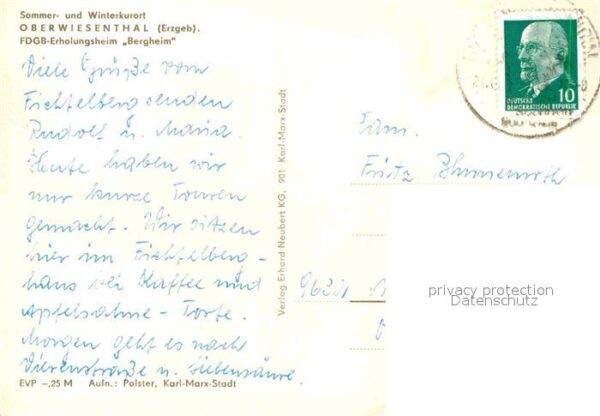 Sommer- und Winterkurort
OBERWIESENTHAL (Erzgeb).
FDGB-Erholungsheim „Bergheim"
Viele Grüße vom
Fichtelberg senden
Rudolf u. Maria.
Heute haben wir
nur kurze Touren
gemacht. Wir sitzen
hier im Fichtelberg-
haus bei Kaffee und
Apfelsahne-Torte.
Morgen geht es nach
u. Siebensäure.
EVP –,25 M Aufn.: Polster, Karl-Marx-Stadt
Verlag Erhard Neubert KG, 901 Karl-Marx-Stadt
10
DEUTSCHE
DEMOKRATISCHE REPUBLIK
Fam.
Fritz
privacy protection
Datenschutz